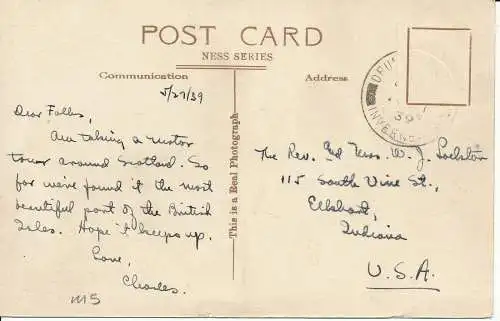 POST CARD
NESS SERIES
Communication
Address
This is a Real Photograph
5/27/39
Dear Folks,
Am taking a motor
tour around Scotland. So
far we've found it the most
beautiful part of the British
Isles. Hope it keeps up.
Love,
Charles.
M5
The Rev. and Mrs. W. J.
115 South Vine St.,
Elkhart,
Indiana
U.S.A.
39